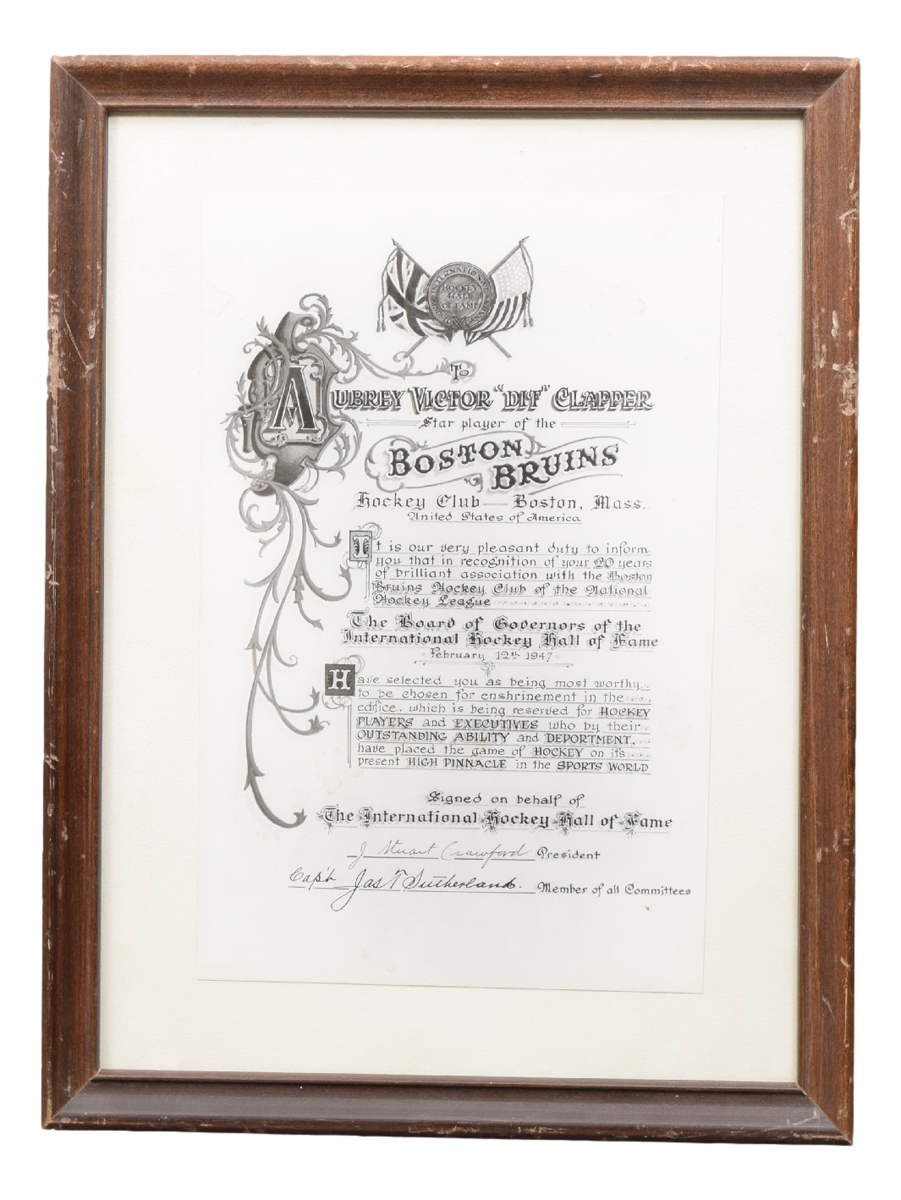 INTERNATIONAL
HOCKEY
HALL
OF FAME
To
AUBREY VICTOR "DIT" CLAPPER
Star player of the
BOSTON BRUINS
Hockey Club — Boston, Mass.
United States of America
It is our very pleasant duty to inform
you that in recognition of your 20 years
of brilliant association with the Boston
Bruins Hockey Club of the National
Hockey League
The Board of Governors of the
International Hockey Hall of Fame
February 12th 1947
Have selected you as being most worthy
to be chosen for enshrinement in the
edifice, which is being reserved for HOCKEY
PLAYERS and EXECUTIVES who by their
OUTSTANDING ABILITY and DEPORTMENT,
have placed the game of HOCKEY on it's
present HIGH PINNACLE in the SPORTS WORLD
Signed on behalf of
The International Hockey Hall of Fame
J Stuart Crawford President
Cap't Jas T Sutherland. Member of all Committees